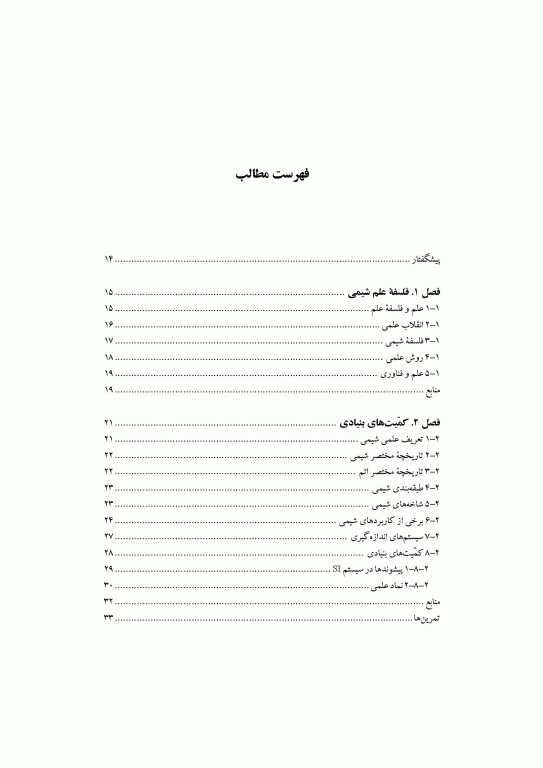 فهرست مطالب
پیشگفتار ........ ۱۴
فصل ۱. فلسفهٔ علم شیمی ........ ۱۵
۱-۱ علم و فلسفهٔ علم ........ ۱۵
۱-۲ انقلاب علمی ........ ۱۶
۱-۳ فلسفهٔ شیمی ........ ۱۷
۱-۴ روش علمی ........ ۱۸
۱-۵ علم و فناوری ........ ۱۹
منابع ........ ۱۹
فصل ۲. کمّیت‌های بنیادی ........ ۲۱
۲-۱ تعریف علمی شیمی ........ ۲۱
۲-۲ تاریخچهٔ مختصر شیمی ........ ۲۲
۲-۳ تاریخچهٔ مختصر اتم ........ ۲۲
۲-۴ طبقه‌بندی شیمی ........ ۲۳
۲-۵ شاخه‌های شیمی ........ ۲۳
۲-۶ برخی از کاربردهای شیمی ........ ۲۴
۲-۷ سیستم‌های اندازه‌گیری ........ ۲۷
۲-۸ کمّیت‌های بنیادی ........ ۲۸
۲-۸-۱ پیشوندها در سیستم SI ........ ۲۹
۲-۸-۲ نماد علمی ........ ۳۰
منابع ........ ۳۲
تمرین‌ها ........ ۳۳